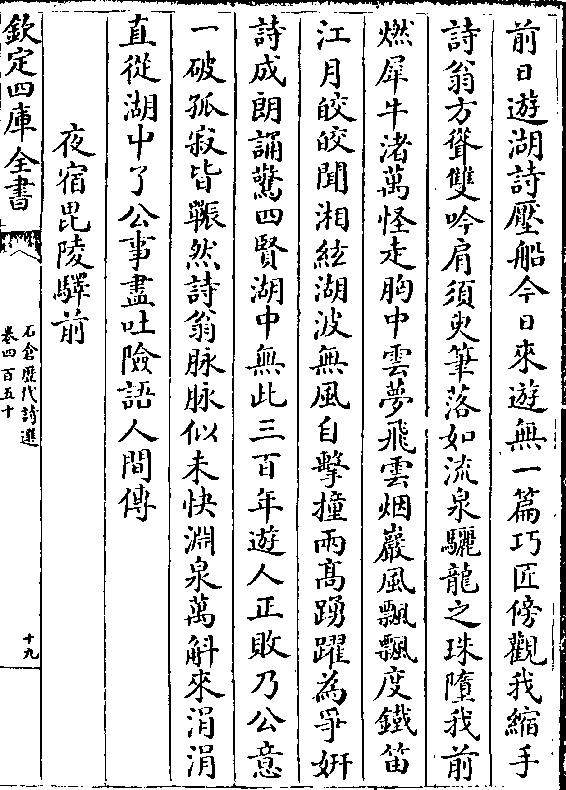 前日遊湖詩壓船今日來遊無一篇巧匠傍觀我縮手
詩翁方聳雙吟肩須臾筆落如流泉驪龍之珠墮我前
燃犀牛渚萬怪走胸中雲夢飛雲烟巖風飄飄度鐵笛
江月皎皎聞湘絃湖波無風自擊撞兩髙踴躍為爭妍
詩成朗誦驚四賢湖中無此三百年遊人正敗乃公意
一破孤寂皆囅然詩翁脉脉似未快淵泉萬斛來涓涓
直從湖中了公事盡吐險語人間傳
夜宿毘陵驛前
欽定四庫全書
石倉歷代詩選
卷四百五十
十九